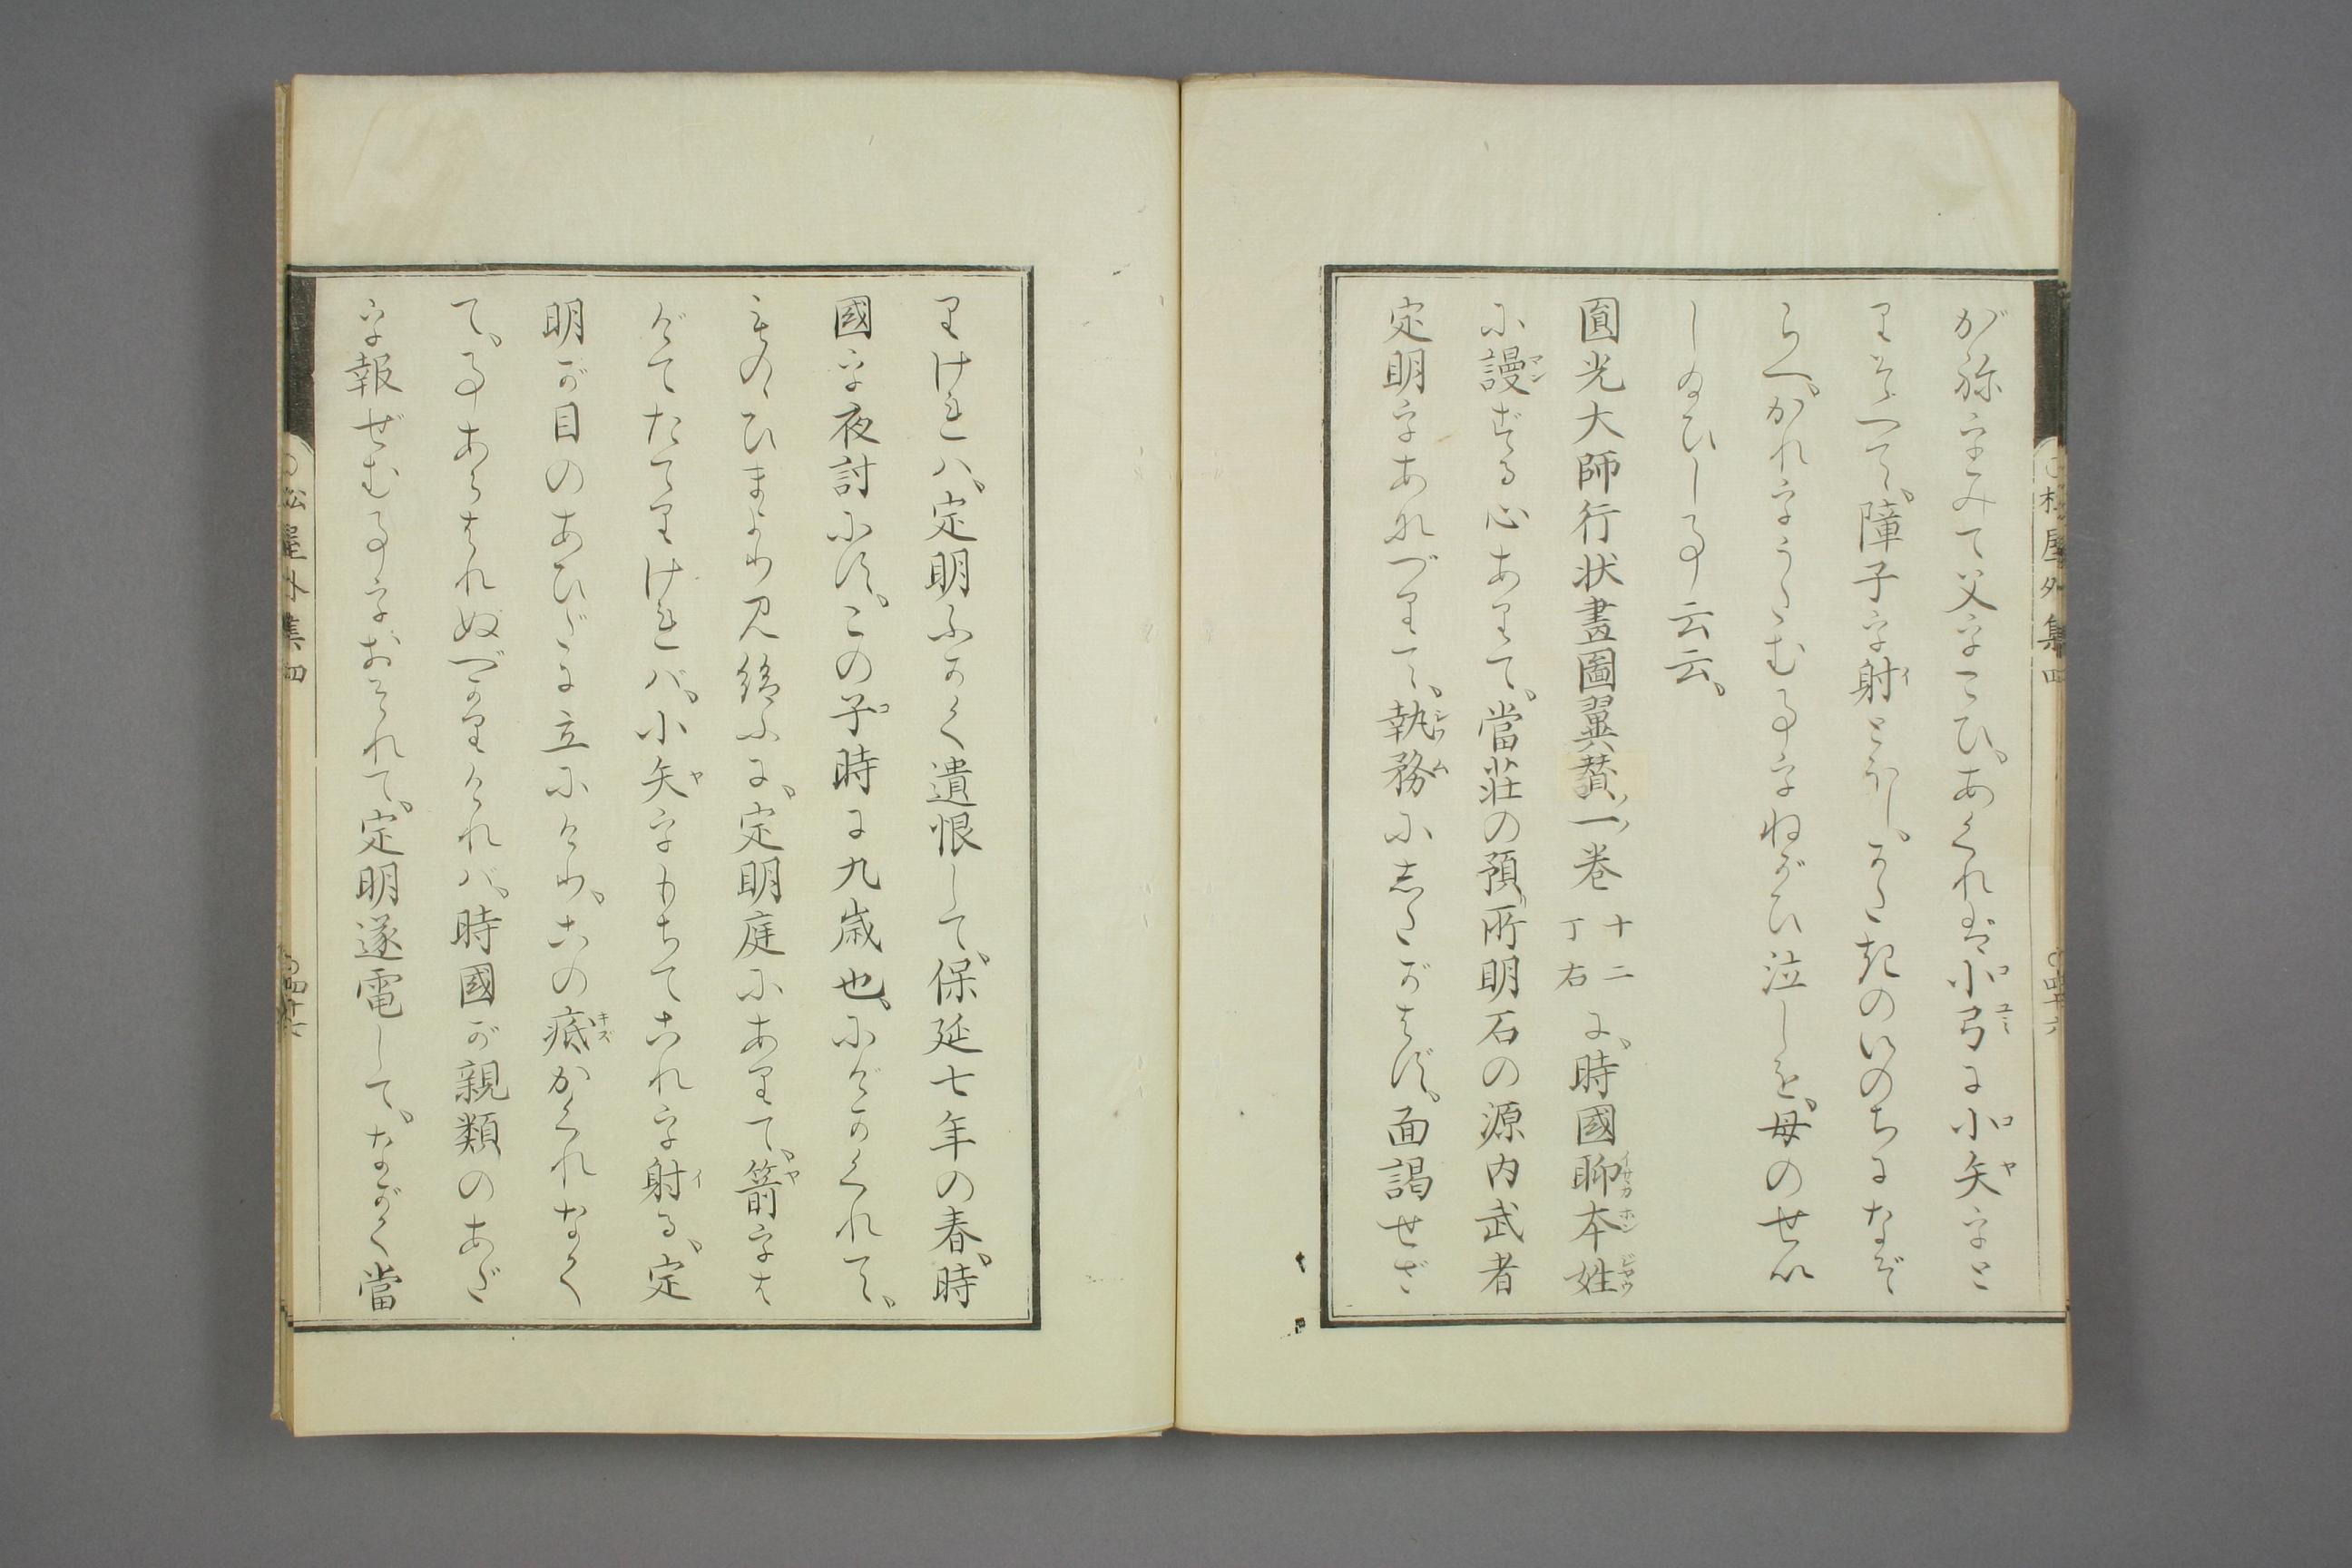 がみて父をこひ。あくれば小弓に小矢をと
りそへて。障子を射とほし。かたきのいのちになぞ
らへ。かれをうたむ事をねがひ泣しを。母のせい
し給ひし事云云。
圓光大師行状畫圖翼賛一巻十二丁右に。時國聊本姓
に謾ずる心ありて。當荘の預所明石の源内武者
定明をあなづりて。執務にしたがはず。面謁せざ
りければ。定明ふかく遺恨して。保延七年の春。時
國を夜討にす。この子時に九歳也。にげかくれて。
ものゝひまより見給ふに。定明庭にありて。箭をは
げてたてりければ。小矢をもちてこれを射る。定
明が目のあひだに立にけり。この疵かくれなく
て。事あらはれぬべかりければ。時國が親類のあだ
を報ぜむ事をおそれて。定明遂電して。ながく當
松屋外集四